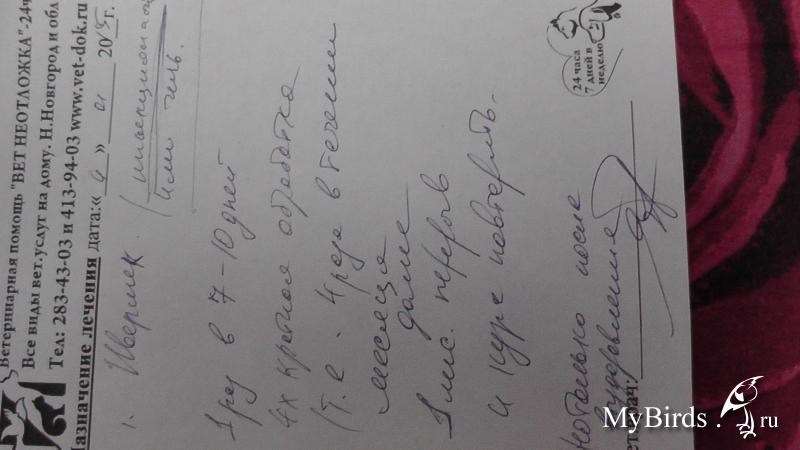 Ветеринарная помощь "ВЕТ НЕОТЛОЖКА"-24ч
Все виды вет.услуг на дому. Н.Новгород и обл
Тел: 283-43-03 и 413-94-03 www.vet-dok.ru
Назначение лечения дата:« 4 » 01 2015г.
1. Ивермек. (инъекционно
или гель.
1 раз в 7-10 дней
4х кратная обработка
(т.е. 4 раза в течении
месяца
далее
1 мес. перерыв
и курс повторить.
только после
выздоровления
ет.врач:
24 часа
7 дней в
неделю
MyBirds.ru